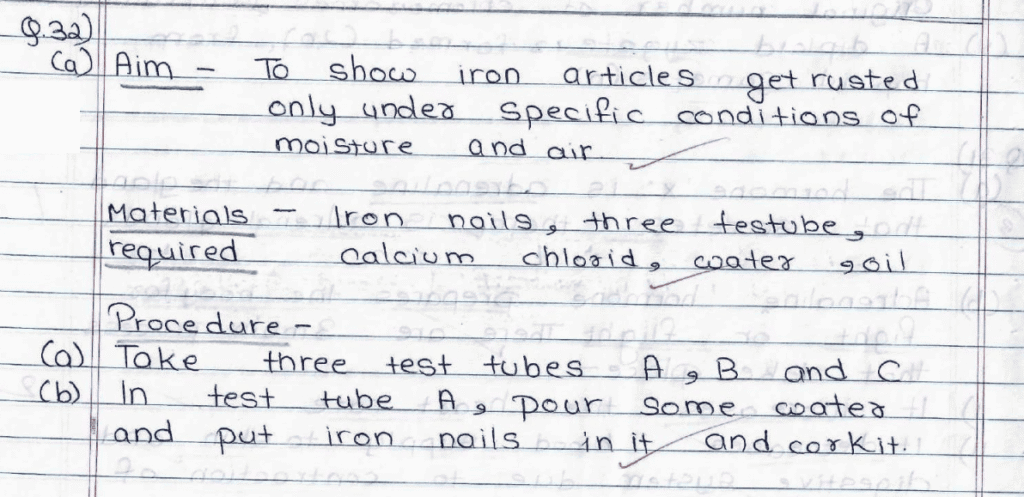 Q.32)
(a) Aim - To show iron articles get rusted
only under specific conditions of
moisture and air.
Materials - Iron nails, three testube,
required calcium chlorid, water, oil
Procedure -
(a) Take three test tubes A, B and C
(b) In test tube A, pour some water
and put iron nails in it and cork it.